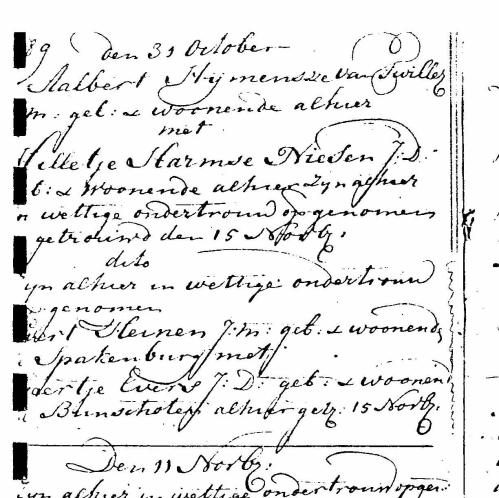 89 den 31 October
Aalbert Hijmensze van Twiller
m: geb: & woonende alhier
met
Willetje Harmse Niesen J:D:
b: & woonende alhier zyn alhier
n wettige ondertrouw opgenomen
getrouwd den 15 Novb:
dito
zyn alhier in wettige ondertrouw
genomen
Heinen J:m: geb: & woonende
Spakenburg met
Evers J:D: geb: & woonend
Bunschoten alhier getr: 15 Novb:
Den 11 Novb:
zyn alhier in wettige ondertrouw opgen